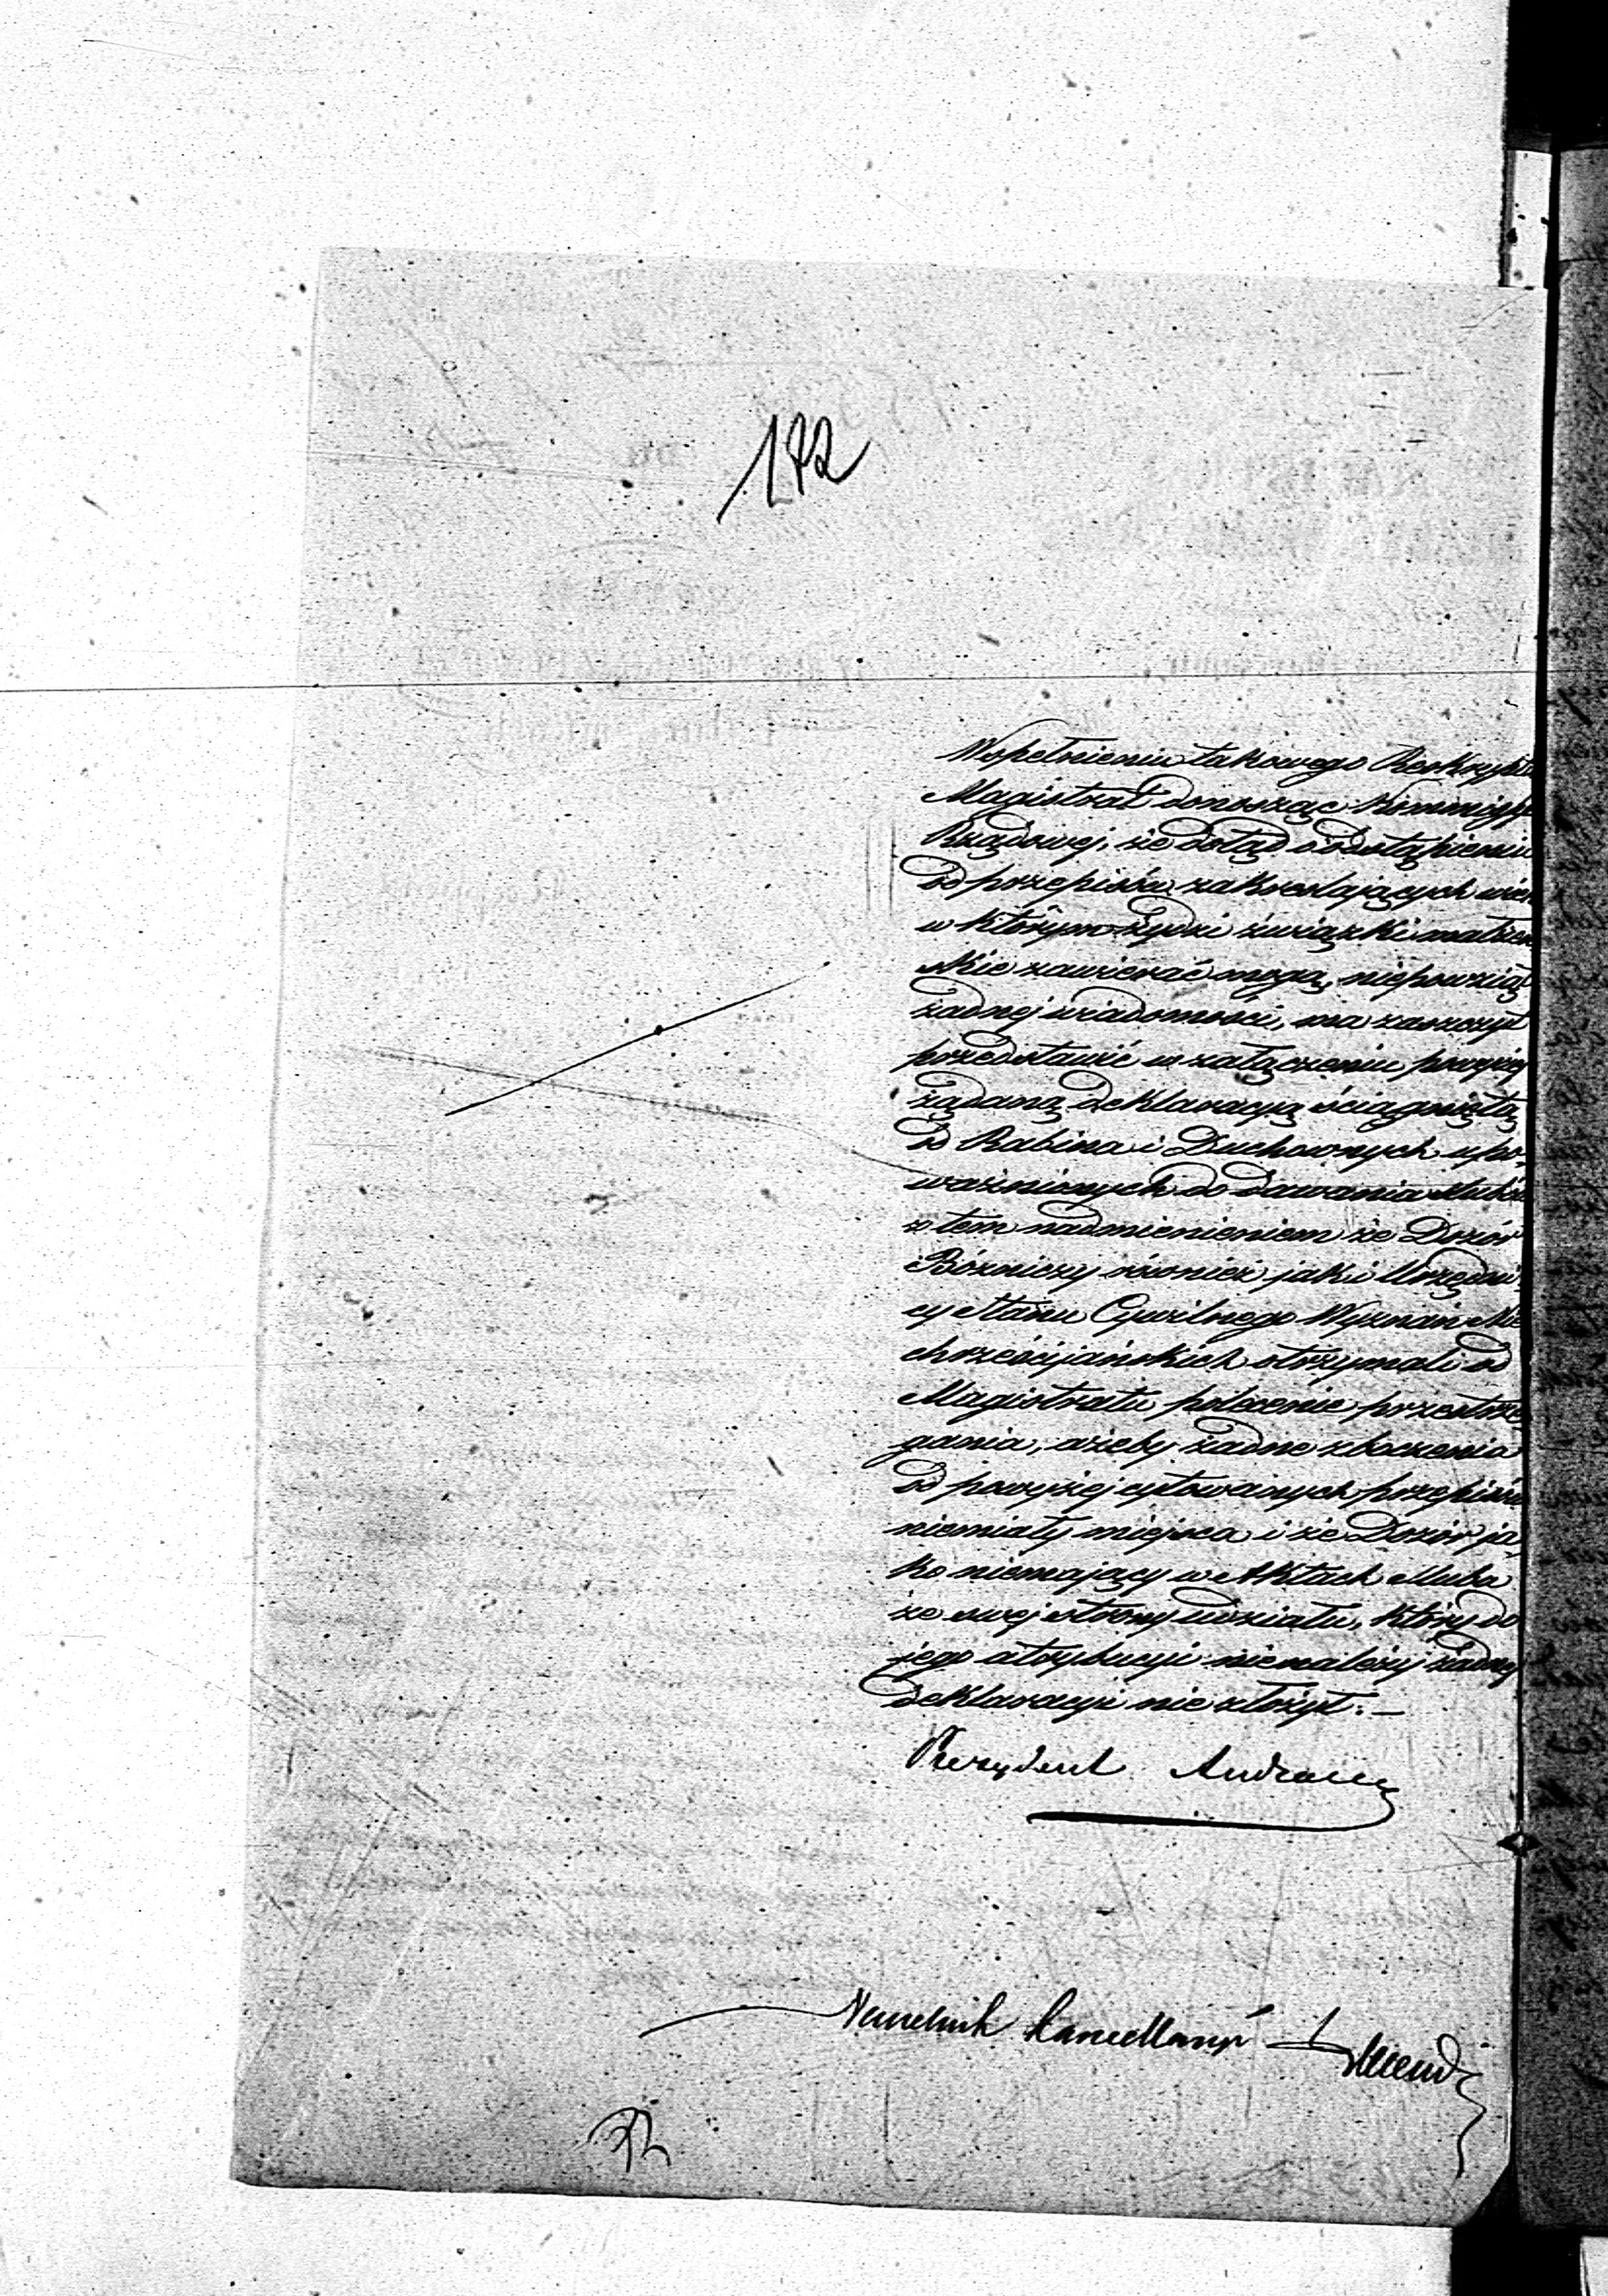 172
W spełnieniu takowego Reskryptu
Magistrat donosząc Kommissyi
Rządowej, że dotąd o odstąpieniu
od przepisów zakreślających wiek
w którym Żydzi związki małżeń
skie zawierać mogą, niepowziął
żadnej wiadomości, ma zaszczyt
przedstawić w załączeniu powyżej
żądaną deklaracyą ściągniętą
od Rabina i Duchownych upo-
ważnionych do dawania ślubów
z tem nadmienieniem że Dozór
Bóżniczy również jak i Urzędni-
cy Stanu Cywilnego Wyznań Nie
chrześcijańskich otrzymali od
Magistratu polecenie przestrze
gania, ażeby żadne zboczenia
od powyżej cytowanych przepisów
niemiały miejsca i że Dozór ja-
ko niemający w Aktach ślubu
ze swej strony udziału, który do
jego atrybucyi nienależy żadnej
deklaracyi nie złożył. —
Prezydent
Naczelnik Kancellaryi